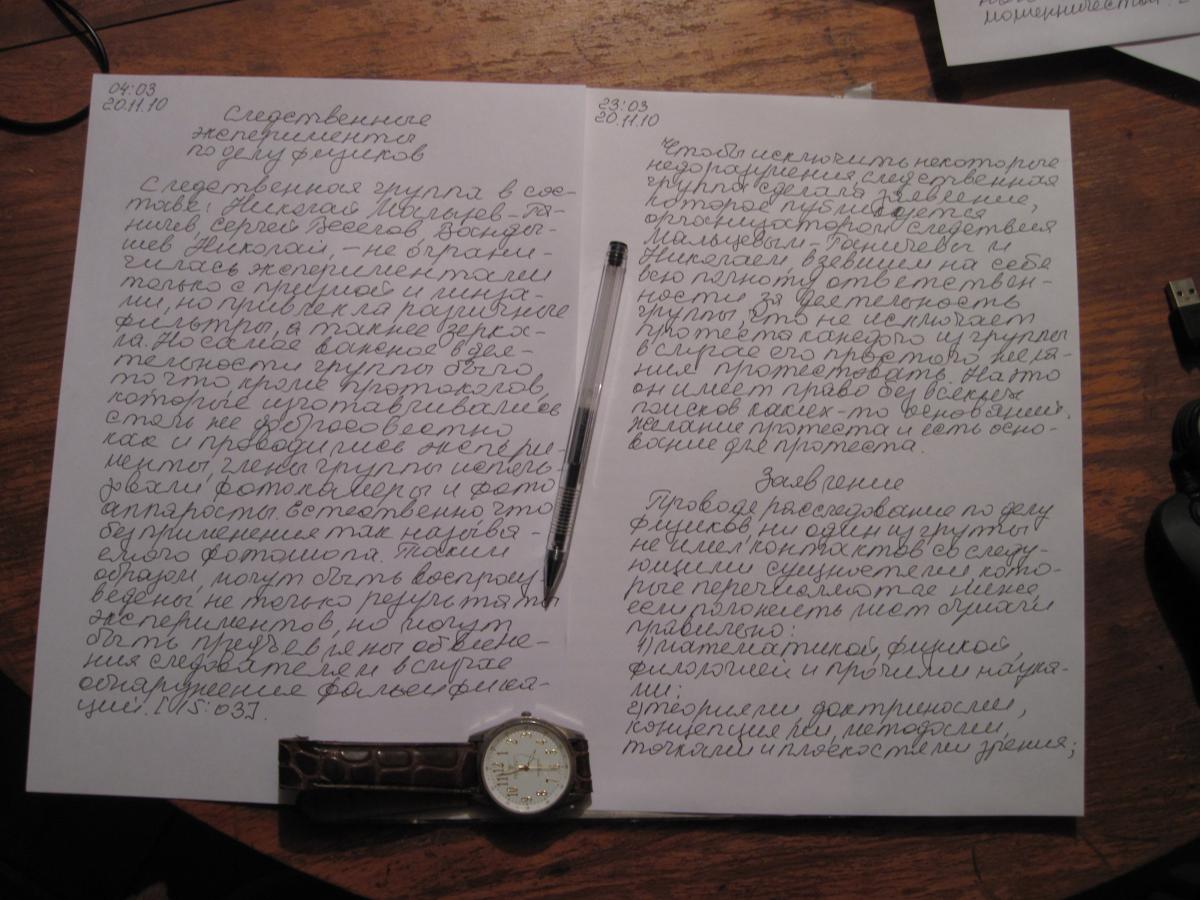 мошенничеством
04:03
20.11.10
Следственные
эксперименты
по делу физиков
Следственная группа в сос-
таве: Николай Мальцев-Га-
ничев, Сергей Веселов, Ванды-
шев Николай, – не ограни-
чилась экспериментами
только с призмой и линза-
ми, но привлекла различные
фильтры, а также зерка-
ла. Но самое важное в дея-
тельности группы было
то что кроме протоколов,
которые изготавливались
столь же добросовестно
как и проводились экспери-
менты, члены группы исполь-
зовали фотокамеры и фото
аппараты. Естественно что
без применения так называ-
емого фотошопа. Таким
образом, могут быть воспроиз
ведены не только результаты
экспериментов, но могут
быть предъявлены обвине-
ния следователям в случае
обнаружение фальсифика-
ций. [15:03].
23:03
20.11.10
Чтобы исключить некоторые
недоразумения, следственная
группа сделала заявление,
которое публикуется
организатором следствия
Мальцевым-Ганичевы и
Николаем, взявшим на себя
всю полноту ответствен-
ности за деятельность
группы, что не исключает
протеста каждого из группы
в случае его простого жела-
ния протестовать. На это
он имеет право без всяких
поисков каких-то оснований,
желание протеста и есть осно-
вание для протеста.
Заявление
Проводя расследование по делу
физиков, ни один из группы
не имел контактов со следу-
ющими сущностями, кото-
рые перечисляются ниже,
если положить лист бумаги
правильно:
1) математикой, физикой,
филологией и прочими наука-
ми;
2) теориями, доктринами,
концепциями, методами,
точками и плоскостями зрения;